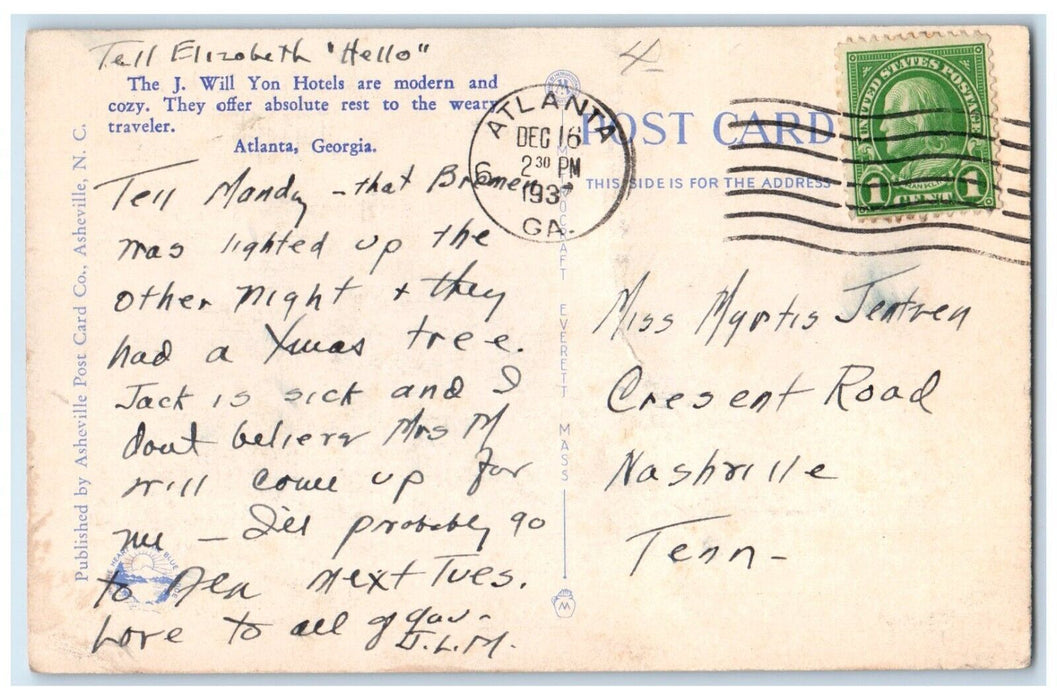 Tell Elizabeth "Hello"
The J. Will Yon Hotels are modern and
cozy. They offer absolute rest to the weary
traveler.
Atlanta, Georgia.
Tell Mandy - that
was lighted up the
other night + they
had a Xmas tree.
Jack is sick and I
dont believe Mrs M
will come up for
me - I'll probably go
to next Tues.
Love to all of you -
J.L.M.
Published by Asheville Post Card Co., Asheville, N. C.
4
ATLANTA
DEC 16
2 30 PM
193
GA.
POST CARD
THIS SIDE IS FOR THE ADDRESS
UNITED STATES POSTAGE
1 1
CENT
EVERETT MASS
Miss Myrtis
Cresent Road
Nashville
Tenn-